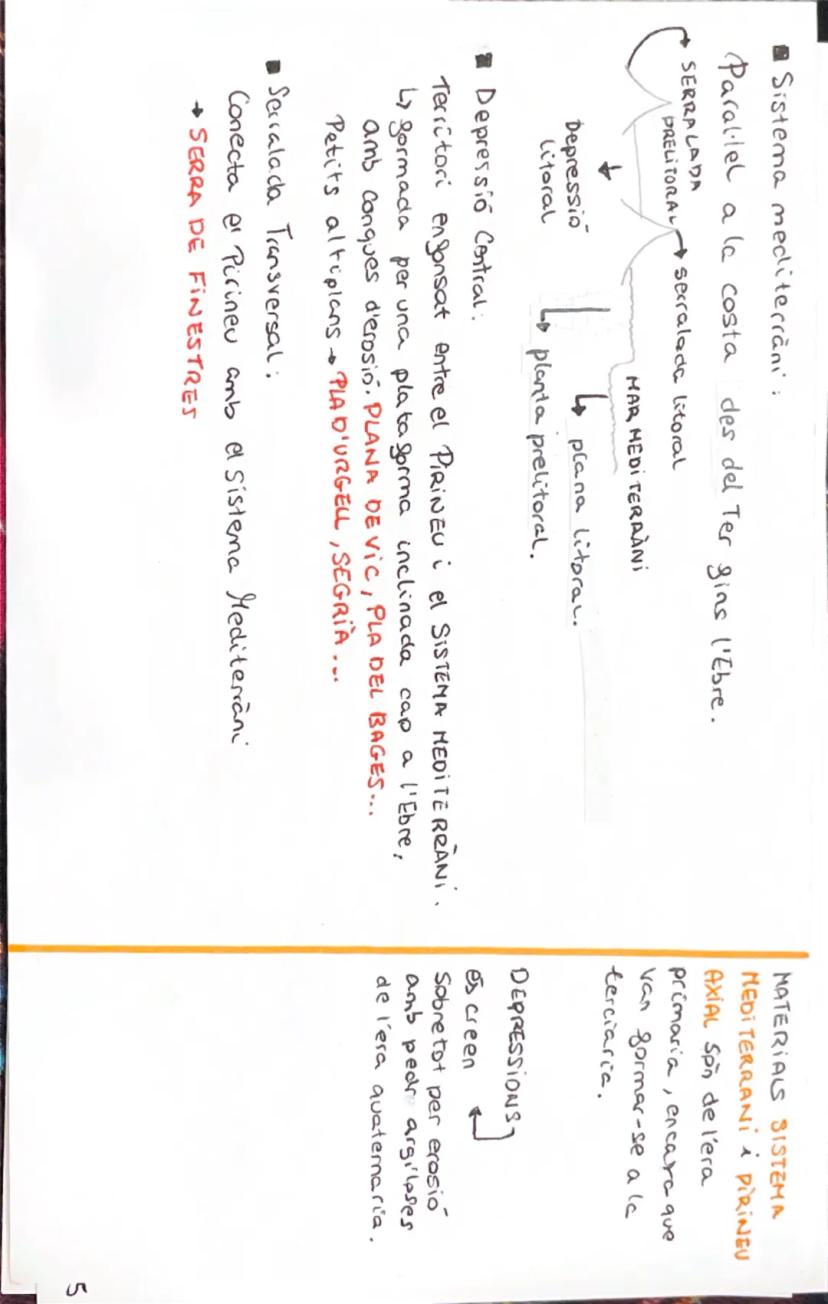 ▪ Sistema mediterràni:
Paral·lel a la costa des del Ter fins l'Ebre.
SERRALADA
PRELITORAL → serralada litoral
MAR MEDITERRÀNI
↓
Depressió
litoral
↳ plana litoral.
↳ planta prelitoral.
▪ Depressió Central:
Territori enfonsat entre el PIRINEU i el SISTEMA MEDITERRÀNI.
↳ formada per una plataforma inclinada cap a l'Ebre,
amb conques d'erosió. PLANA DE VIC, PLA DEL BAGES...
Petits altiplans → PLA D'URGELL, SEGRIÀ....
▪ Serralada Transversal:
Conecta el Pirineu amb el Sistema Mediterràni
→ SERRA DE FINESTRES
MATERIALS SISTEMA
MEDITERRANI i PIRINEU
AXIAL són de l'era
primaria, encara que
van formar-se a la
terciaria.
DEPRESSIONS
es creen
Sobretot per erosió
amb pedr argiloses
de l'era quaternaria.
5